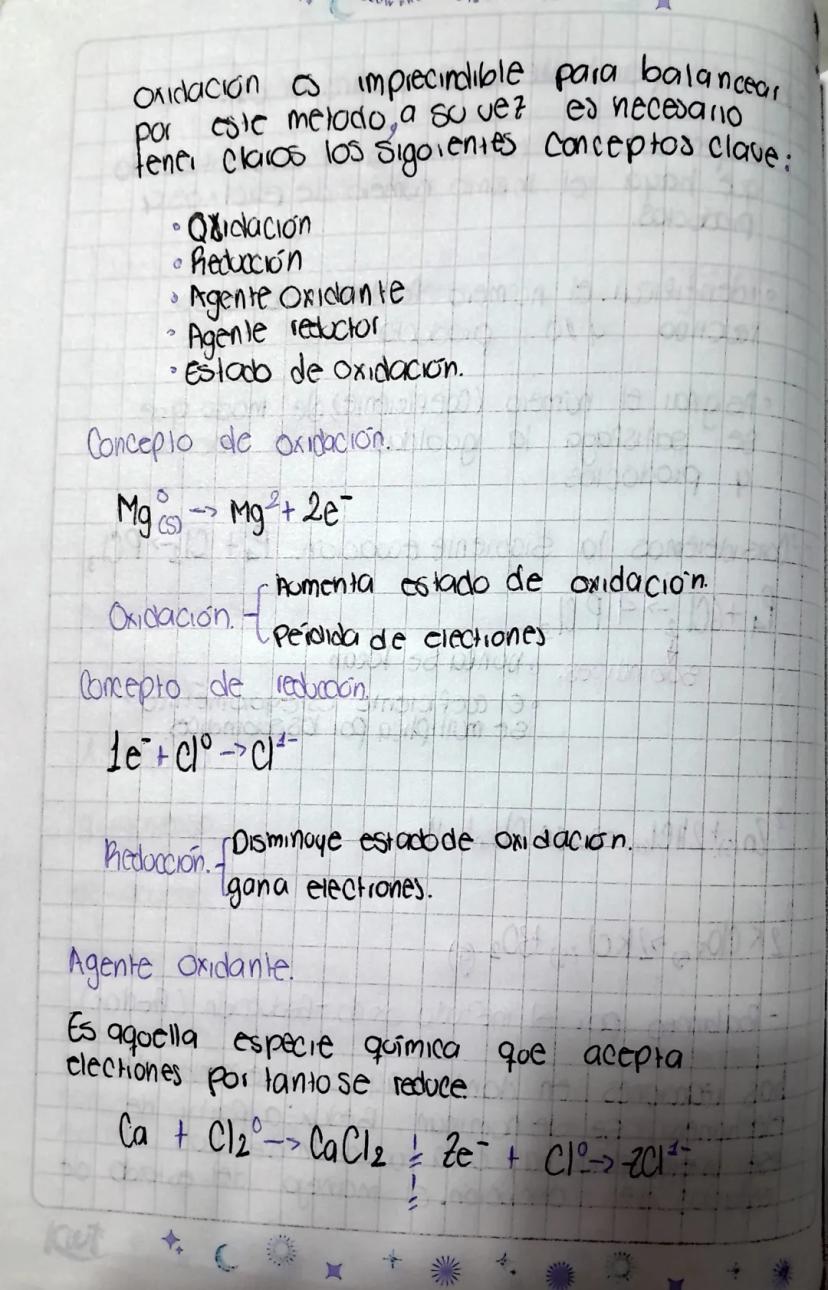 oxidación es imprecindible para balancear
por este metodo, a su vez es necesario
tener claros los siguientes conceptos clave:
• Oxidación
• Reducción
• Agente Oxidante
• Agente reductor
• Estado de oxidación.
Concepto de oxidación.
Mg⁰(s) -> Mg² + 2e⁻
Oxidación. Aumenta estado de oxidación.
Pérdida de electrones
Concepto de reducción.
1e⁻ + Cl⁰ -> Cl¹⁻
Reducción. Disminuye estado de oxidación.
gana electrones.
Agente Oxidante.
Es aquella especie química que acepta
electrones por tanto se reduce
Ca + Cl₂⁰ -> CaCl₂ ¦ 2e⁻ + Cl⁰ -> 2Cl¹⁻